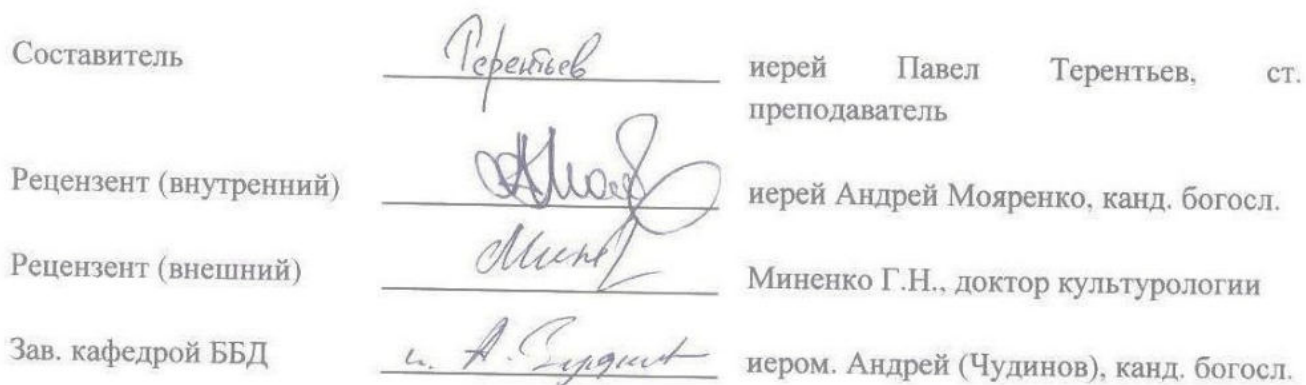 Составитель Терентьев иерей Павел Терентьев, ст.
преподаватель
Рецензент (внутренний) иерей Андрей Мояренко, канд. богосл.
Рецензент (внешний) Минен Миненко Г.Н., доктор культурологии
Зав. кафедрой ББД и. А. иером. Андрей (Чудинов), канд. богосл.